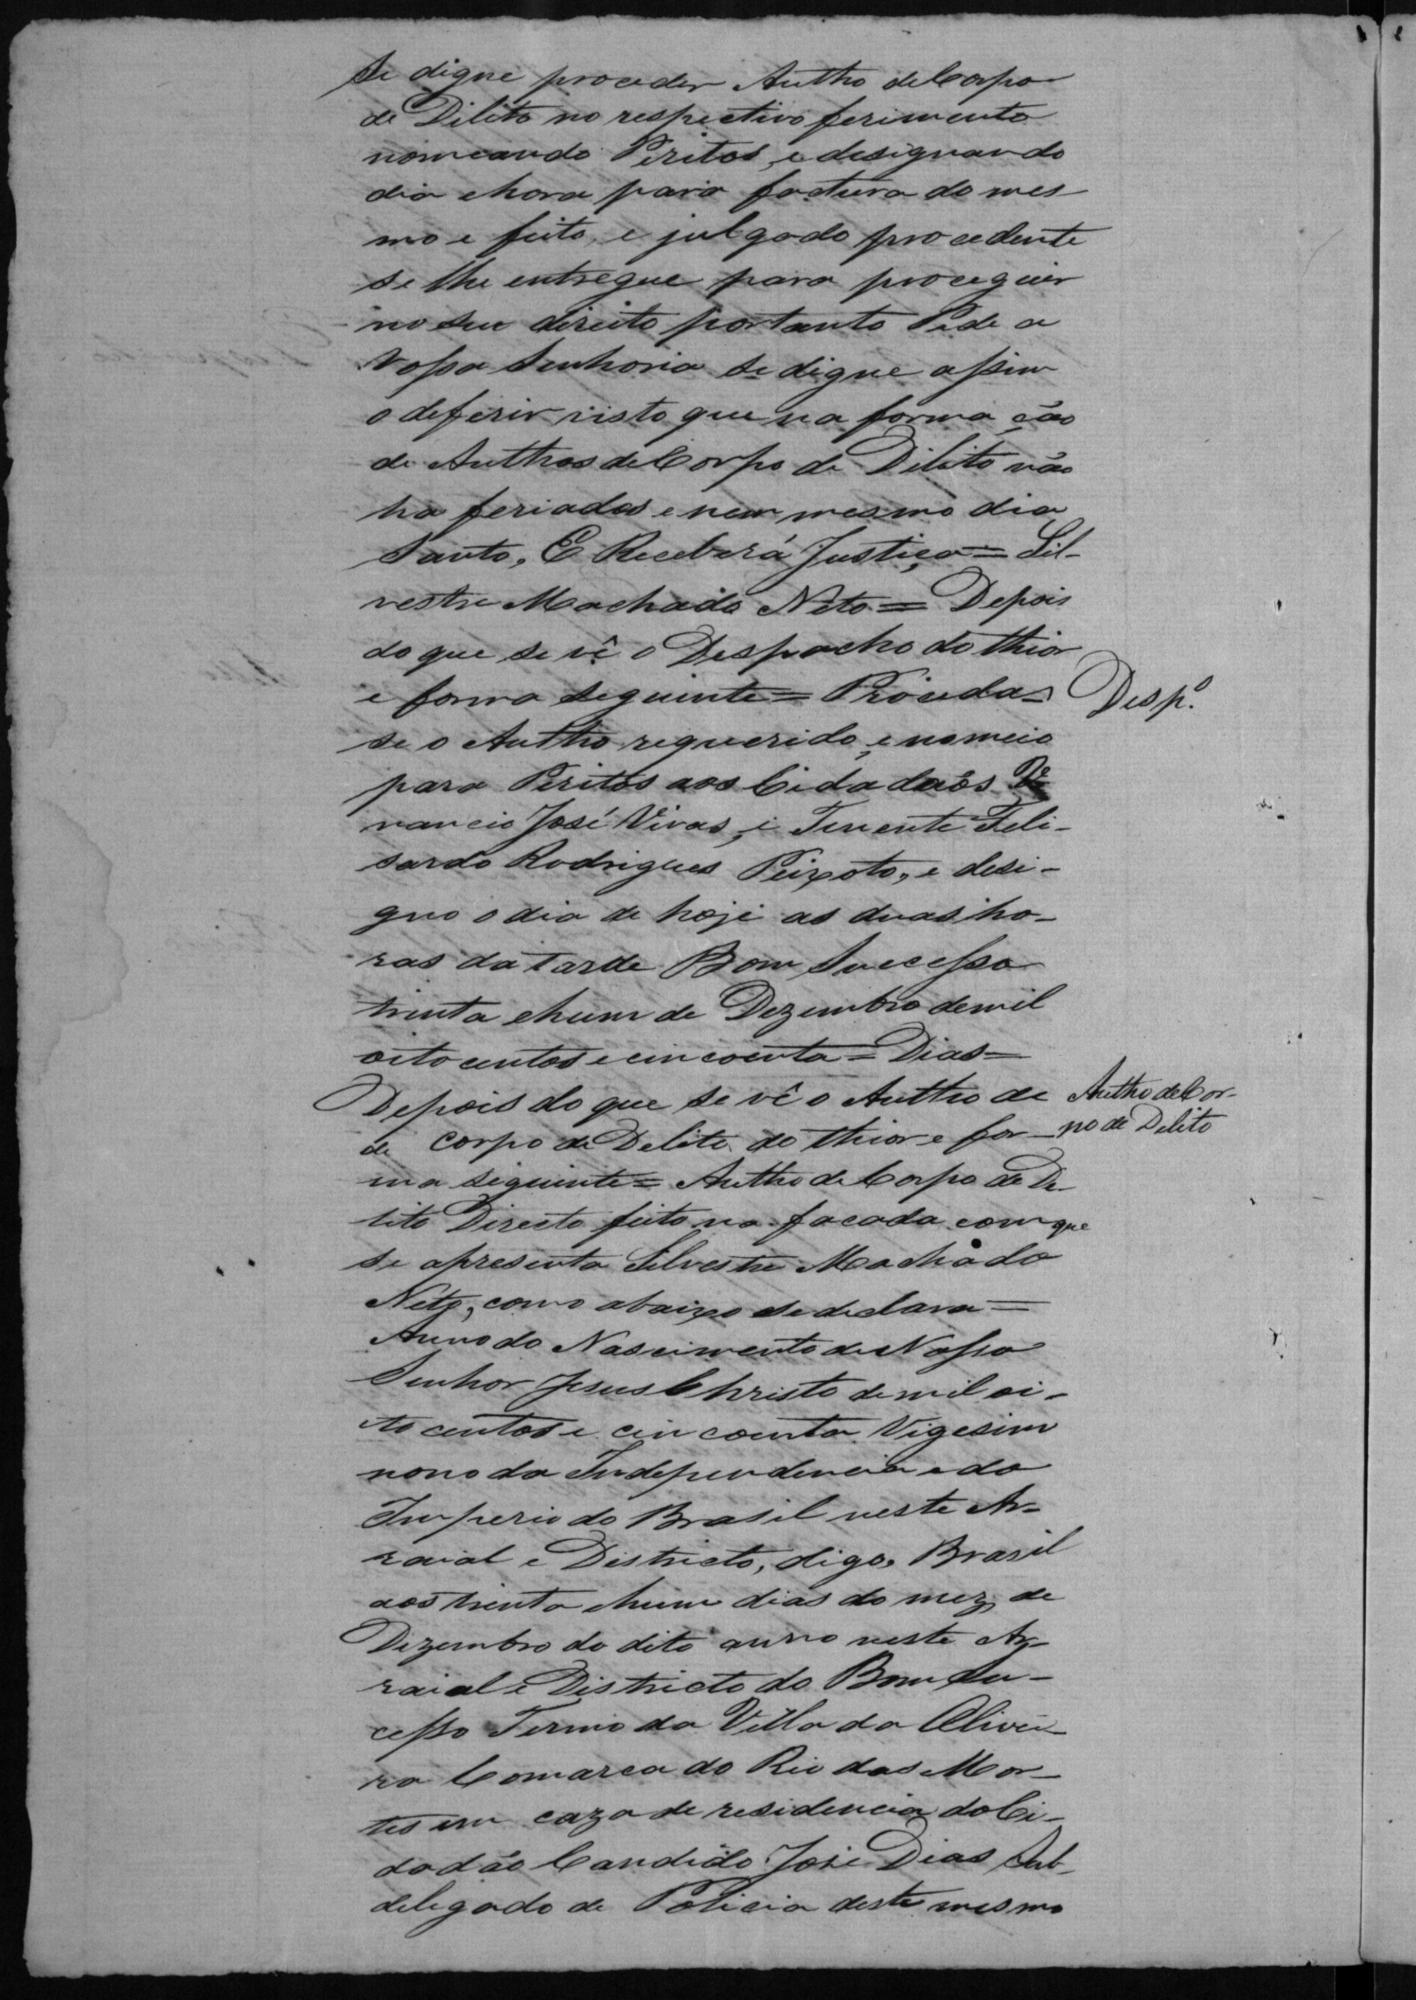 Se digne proceder Autho de Corpo
de Dilito no respectivo ferimento
nomeando Peritos, e designando
dia e hora para factura do mes
mo e feito, e julgado procedente
se lhe entregue para proceguir
no seu direito portanto Pede a
Vossa Senhoria se digne assim
o deferir visto que na forma ção
de Authos de Corpo de Dilito não
ha feriados e nem mesmo dia
Santo, E Receberá Justiça = Sil-
vestre Machado Neto = Depois
do que se vê o Despacho do thior
e forma seguinte = Proceda-
se o Autho requerido, e nomeio
para Peritos aos Cidadaõs Ve
nancio José Vivas, e Tenente Feli-
sardo Rodrigues Peixoto, e desi-
gno o dia de hoje as duas ho-
ras da tarde Bom Sucesso
trinta e hum de Dezembro de mil
oito centos e cincoenta = Dias =
Depois do que se vê o Autho de
de corpo de Delito do thior e for-
ma seguinte = Autho de Corpo de De-
lito Directo feito na facada com que
se apresenta Silvestre Machado
Neto, como abaixo se declara =
Anno do Nascimento de Nosso
Senhor Jesus Christo de mil oi-
to centos e cincoenta Vigesimo
nono da Independencia e do
Imperio do Brasil neste Ar-
raial e Districto, digo, Brazil
aos trinta e hum dias do mez de
Dezembro do dito anno neste Ar-
raial e Districto do Bom Su-
cesso Termo da Villa da Olivei-
ra Comarca do Rio das Mor-
tes em caza de residencia do Ci-
dadão Candido José Dias Sub-
delegado de Policia deste mesmo
Desp.º
Autho de Cor-
po de Delito